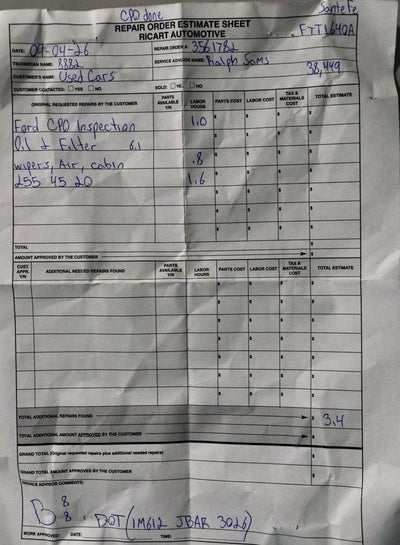 CPO done
Santa Fe
REPAIR ORDER ESTIMATE SHEET
RICART AUTOMOTIVE
FTT1640A
DATE: 09-04-26
REPAIR ORDER #: 3561782
TECHNICIAN NAME: 8882
SERVICE ADVISOR NAME: Ralph Sams
38,449
CUSTOMER'S NAME: Used Cars
CUSTOMER CONTACTED: YES NO
SOLD: YES NO
ORIGINAL REQUESTED REPAIRS BY THE CUSTOMER PARTS AVAILABLE Y/N LABOR HOURS PARTS COST LABOR COST TAX & MATERIALS COST TOTAL ESTIMATE
Ford CPO Inspection 1.0 $ $ $ $
Oil & Filter 6.1 $ $ $ $
wipers, Air, cabin .8 $ $ $ $
255 45 20 1.6 $ $ $ $
$ $ $ $
$ $ $ $
TOTAL $
AMOUNT APPROVED BY THE CUSTOMER $
CUST. APPR. Y/N ADDITIONAL NEEDED REPAIRS FOUND PARTS AVAILABLE Y/N LABOR HOURS PARTS COST LABOR COST TAX & MATERIALS COST TOTAL ESTIMATE
$ $ $ $
$ $ $ $
$ $ $ $
$ $ $ $
$ $ $ $
$ $ $ $
TOTAL ADDITIONAL REPAIRS FOUND $ 3.4
TOTAL ADDITIONAL AMOUNT APPROVED BY THE CUSTOMER $
GRAND TOTAL (Original requested repairs plus additional needed repairs) $
GRAND TOTAL AMOUNT APPROVED BY THE CUSTOMER $
SERVICE ADVISOR COMMENTS:
B 8 8 . DOT (1M612 JBAR 3026)
WORK APPROVED: DATE: TIME: